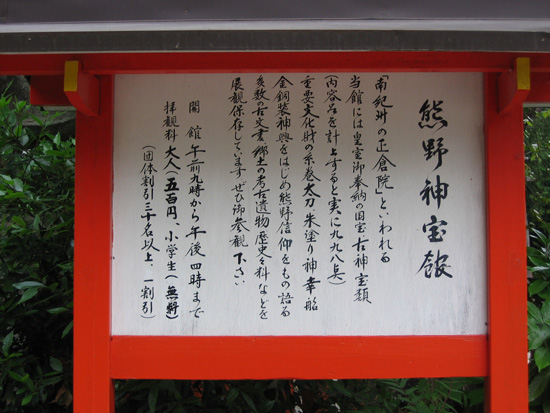 熊野神宝館
「南紀州の正倉院」といわれる
当館には皇室御奉納の国宝古神宝類
(内容品を計上すると実に九九八点)
重要文化財の糸巻太刀、朱塗り神幸船
金銅装神輿をはじめ熊野信仰をもの語る
多数の古文書、郷土の考古遺物、歴史資料などを
展観保存しています。ぜひ御参観下さい
開館 午前九時から午後四時まで
拝観料 大人(五百円、小学生(無料)
(団体割引三十名以上、一割引)